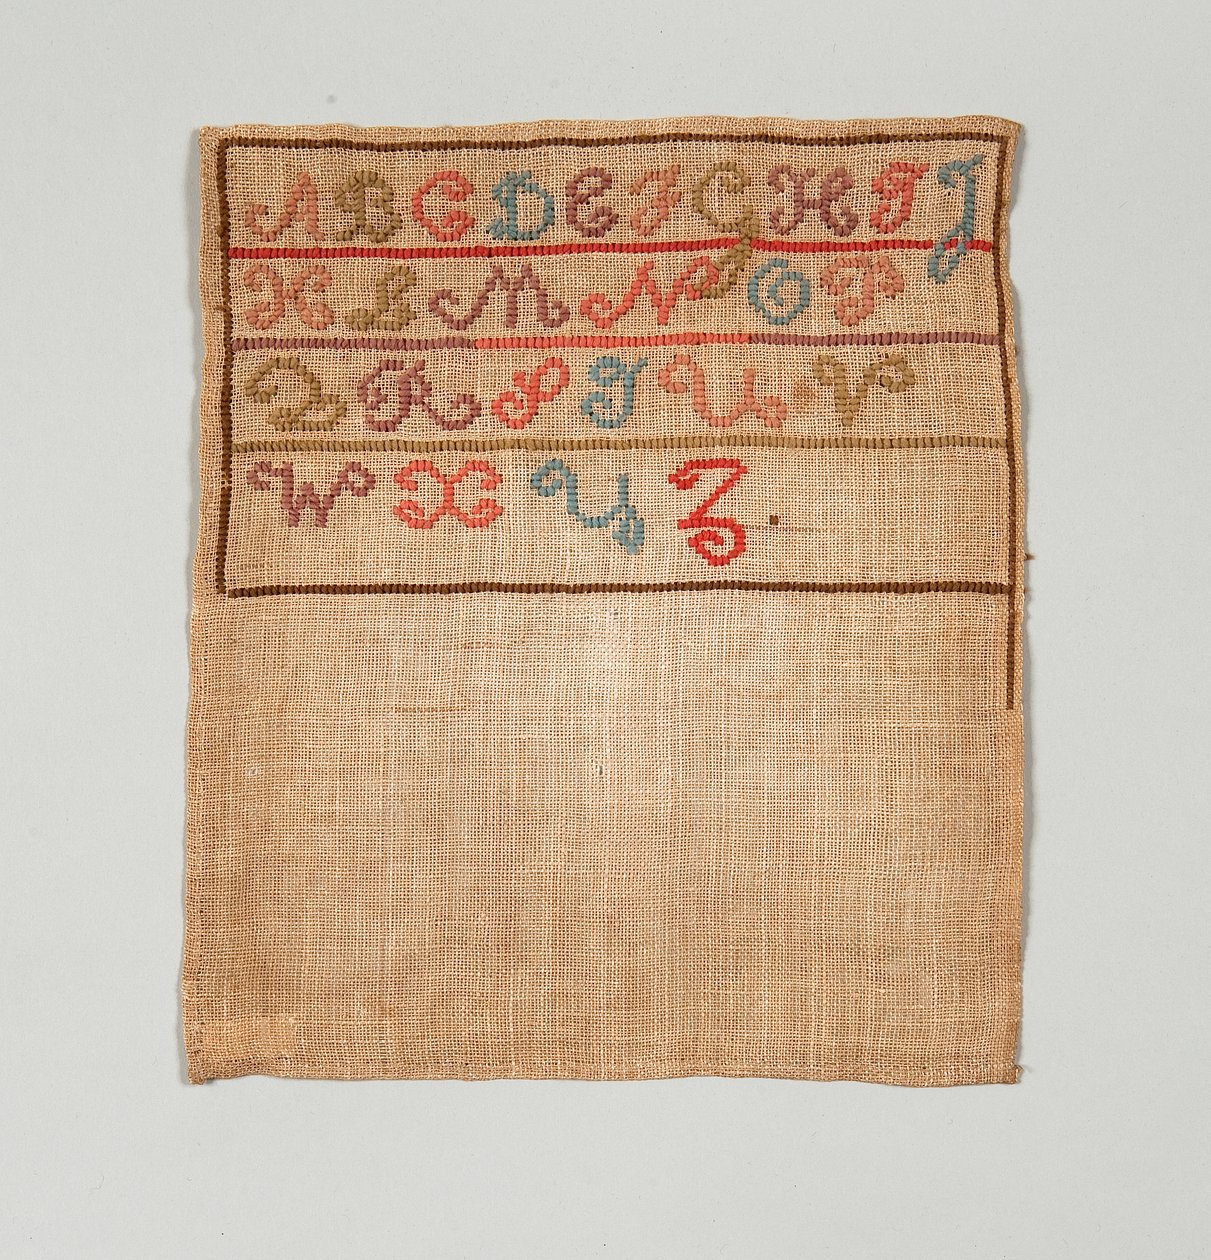 A B C D E F G H I J
K L M N O P
Q R S T U V
W X Y Z